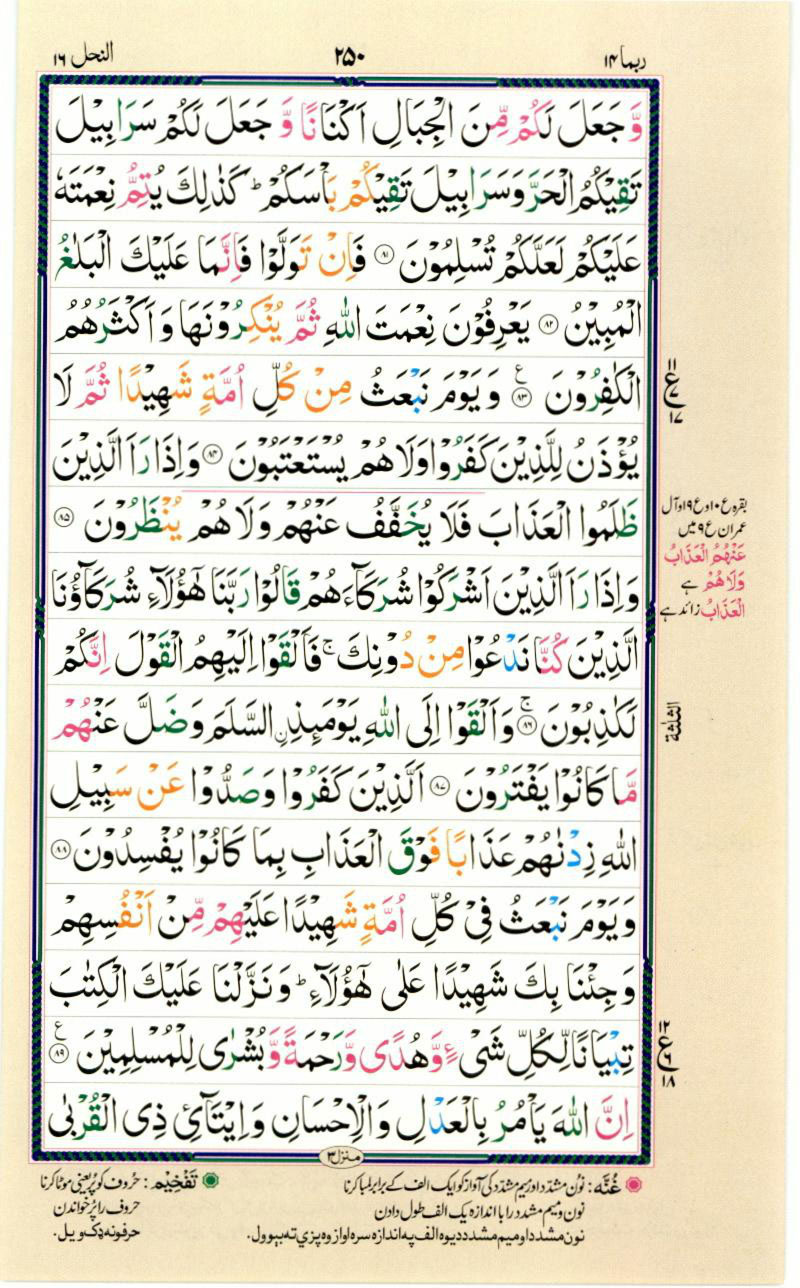 ربما ۱۴
۲۵۰
النحل ۱۶
وَّجَعَلَ لَكُمْ مِّنَ الْجِبَالِ اَكْنَانًا وَّجَعَلَ لَكُمْ سَرَابِيْلَ
تَقِيْكُمُ الْحَرَّ وَسَرَابِيْلَ تَقِيْكُمْ بَاْسَكُمْ ؕ كَذٰلِكَ يُتِمُّ نِعْمَتَهٗ
عَلَيْكُمْ لَعَلَّكُمْ تُسْلِمُوْنَ ۸۱ فَاِنْ تَوَلَّوْا فَاِنَّمَا عَلَيْكَ الْبَلٰغُ
الْمُبِيْنُ ۸۲ يَعْرِفُوْنَ نِعْمَتَ اللّٰهِ ثُمَّ يُنْكِرُوْنَهَا وَاَكْثَرُهُمُ
الْكٰفِرُوْنَ ۸۳ وَيَوْمَ نَبْعَثُ مِنْ كُلِّ اُمَّةٍ شَهِيْدًا ثُمَّ لَا
يُؤْذَنُ لِلَّذِيْنَ كَفَرُوْا وَلَا هُمْ يُسْتَعْتَبُوْنَ ۸۴ وَاِذَا رَاَ الَّذِيْنَ
ظَلَمُوا الْعَذَابَ فَلَا يُخَفَّفُ عَنْهُمْ وَلَا هُمْ يُنْظَرُوْنَ ۸۵
وَاِذَا رَاَ الَّذِيْنَ اَشْرَكُوْا شُرَكَآءَهُمْ قَالُوْا رَبَّنَا هٰٓؤُلَآءِ شُرَكَآؤُنَا
الَّذِيْنَ كُنَّا نَدْعُوْا مِنْ دُوْنِكَ ۚ فَاَلْقَوْا اِلَيْهِمُ الْقَوْلَ اِنَّكُمْ
لَكٰذِبُوْنَ ۸۶ ۚ وَاَلْقَوْا اِلَى اللّٰهِ يَوْمَئِذِ ۨالسَّلَمَ وَضَلَّ عَنْهُمْ
مَّا كَانُوْا يَفْتَرُوْنَ ۸۷ اَلَّذِيْنَ كَفَرُوْا وَصَدُّوْا عَنْ سَبِيْلِ
اللّٰهِ زِدْنٰهُمْ عَذَابًا فَوْقَ الْعَذَابِ بِمَا كَانُوْا يُفْسِدُوْنَ ۸۸
وَيَوْمَ نَبْعَثُ فِيْ كُلِّ اُمَّةٍ شَهِيْدًا عَلَيْهِمْ مِّنْ اَنْفُسِهِمْ
وَجِئْنَا بِكَ شَهِيْدًا عَلٰى هٰٓؤُلَآءِ ؕ وَنَزَّلْنَا عَلَيْكَ الْكِتٰبَ
تِبْيَانًا لِّكُلِّ شَيْءٍ وَّهُدًى وَّرَحْمَةً وَّبُشْرٰى لِلْمُسْلِمِيْنَ ۸۹
اِنَّ اللّٰهَ يَاْمُرُ بِالْعَدْلِ وَالْاِحْسَانِ وَاِيْتَآئِ ذِي الْقُرْبٰى
۱۱
ع
۷
۱۷
بقرہ ع۱۰ و ع۱۹ و آل
عمران ع۹ میں
عَنْهُمُ الْعَذَابُ
وَلَا هُمْ ہے
الْعَذَابُ زائد ہے
الثلثة
۱۲
ع
۶
۱۸
منزل ۳
غُنَّه: نون مشدد اور میم مشدد کی آواز کو ایک الف کے برابر لمبا کرنا
نون و میم مشدد را با اندازہ یک الف طول دادن
نون مشدد او میم مشدد دیوه الف په اندازه سره اواز وه پزي ته بېوول.
تَفْخِيْم: حروف کو پُر یعنی موٹا کرنا
حروف را پُر خواندن
حرفونه ډک ویل.